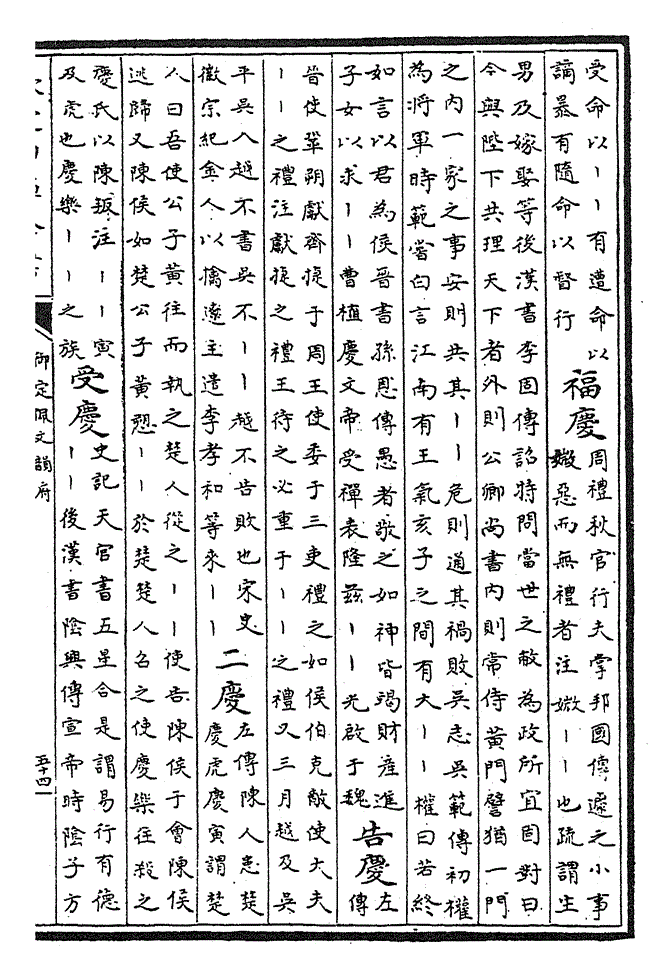 受命以丨丨有遭命以
謫暴有隨命以督行
福慶
周禮秋官行夫掌邦國傳遽之小事
媺惡而無禮者注媺丨丨也疏謂生
男及嫁娶等後漢書李固傳詔特問當世之敝為政所宜固對曰
今與陛下共理天下者外則公卿尚書内則常侍黃門譬猶一門
之内一家之事安則共其丨丨危則通其禍敗吳志吳範傳初權
為將軍時範嘗白言江南有王氣亥子之間有大丨丨權曰若終
如言以君為侯晉書孫恩傳愚者敬之如神皆竭財産進
子女以求丨丨曹植慶文帝受禪表隆兹丨丨光啟于魏
告慶
左
傳
晉使鞏朔獻齊捷于周王使委于三吏禮之如侯伯克敵使大夫
丨丨之禮注獻捷之禮王待之必重于丨丨之禮又三月越及吳
平吳入越不書吳不丨丨越不告敗也宋史
徽宗紀金人以擒遼主遣李孝和等來丨丨
二慶
左傳陳人患楚
慶虎慶寅謂楚
人曰吾使公子黃往而執之楚人從之丨丨使告陳侯于會陳侯
逃歸又陳侯如楚公子黃愬丨丨於楚楚人召之使慶樂往殺之
慶氏以陳叛注丨丨寅
及虎也慶樂丨丨之族
受慶
史記天官書五星合是謂易行有德
丨丨後漢書陰興傳宣帝時陰子方
御定佩文韻府
五十四